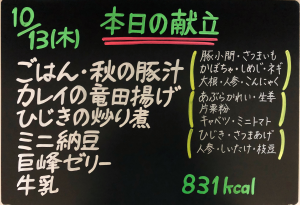 10/13(木)
本日の献立
ごはん・秋の豚汁
カレイの竜田揚げ
ひじきの炒り煮
ミニ納豆
巨峰ゼリー
牛乳
豚小間・さつまいも
かぼちゃ・しめじ・ネギ
大根・人参・こんにゃく
あぶらかれい・生姜
片栗粉
キャベツ・ミニトマト
ひじき・さつまあげ
人参・しいたけ・枝豆
831kcal